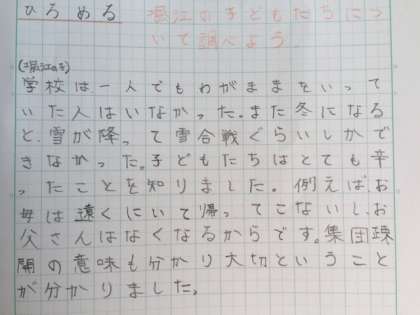 ひろめる 堀江の子どもたちにつ
いて調べよう。
(堀江の子)
学校は一人でもわがままをいって
いた人はいなかった。また冬になる
と、雪が降って雪合戦ぐらいしかで
きなかった。子どもたちはとても辛
ったことを知りました。例えば、お
母は遠くにいて帰ってこないし、お
父さんはなくなるからです。集団疎
開の意味も分かり大切ということ
が分かりました。